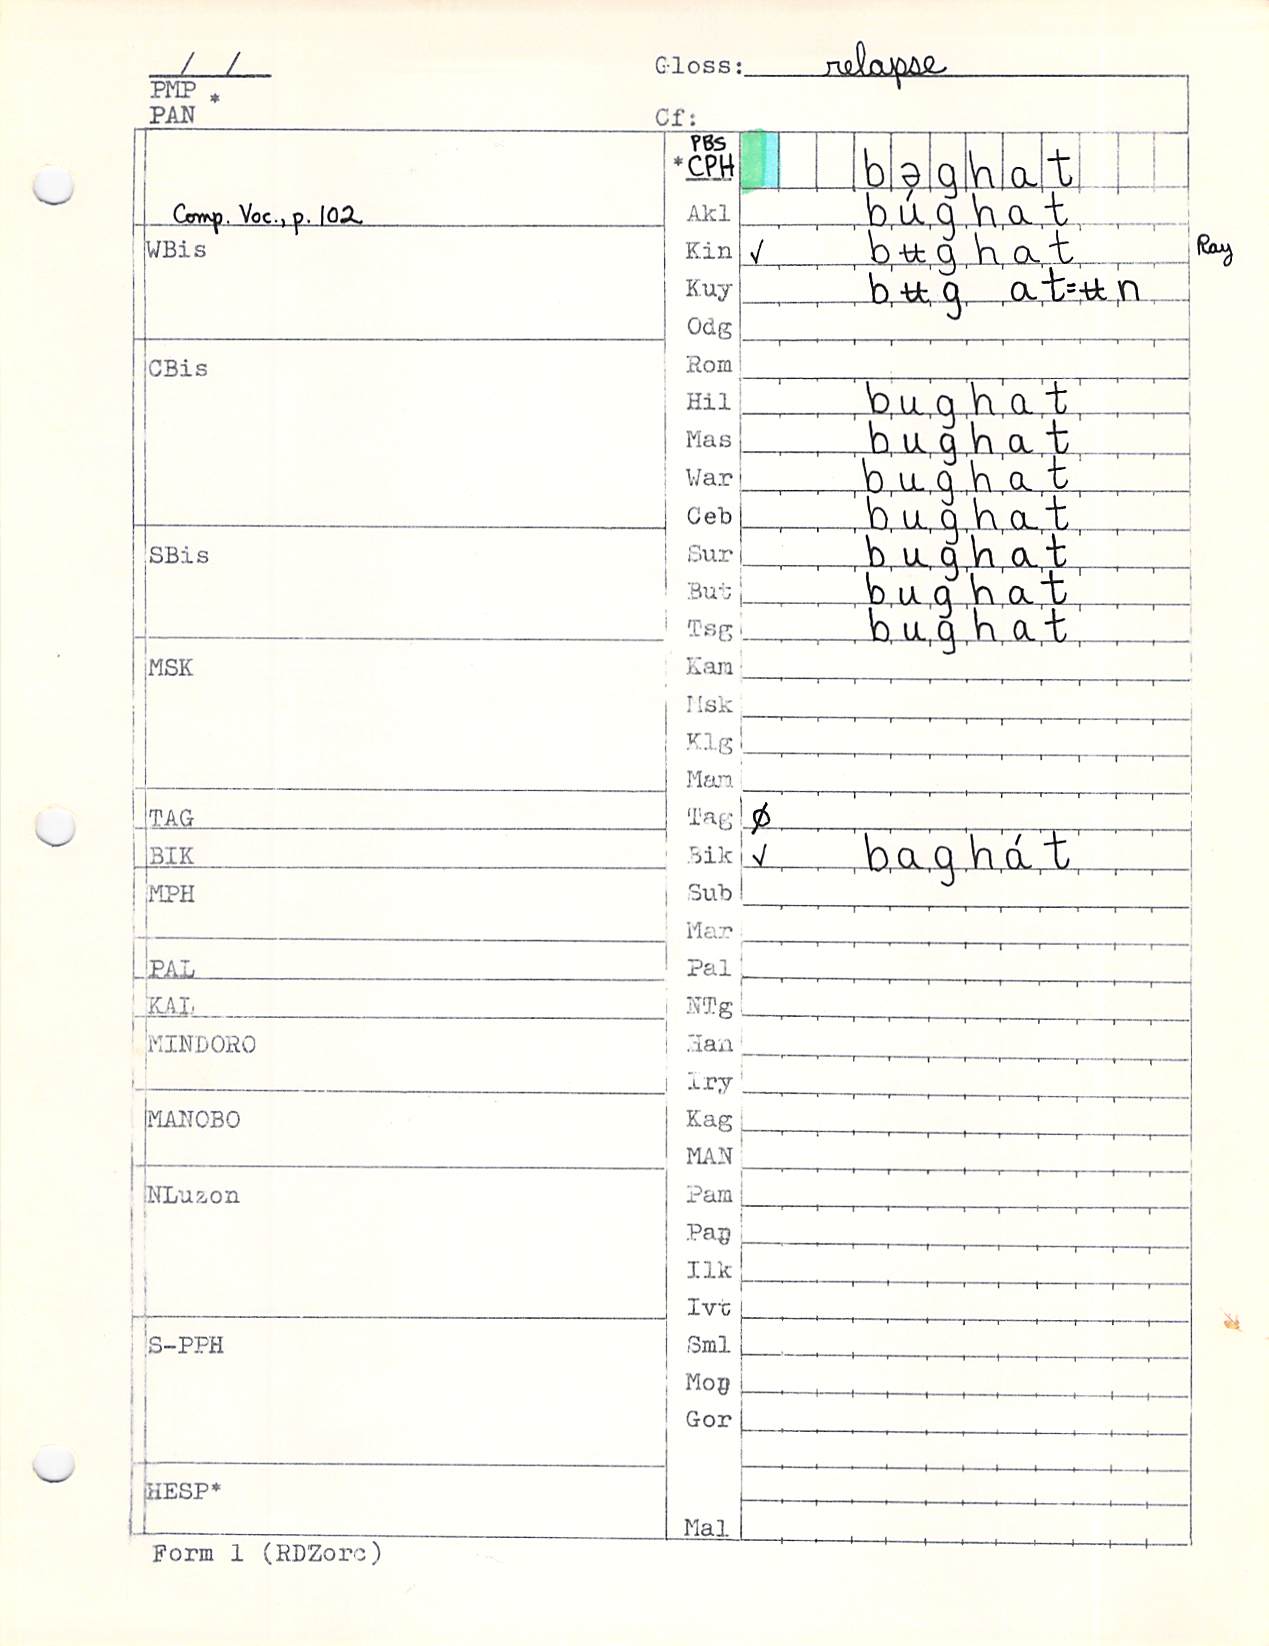 / / Gloss: relapse
PMP *
PAN Cf:
PBS
*CPH bəghat
Comp. Voc., p. 102 Akl búghat
WBis Kin ✓ bʉghat Ray
Kuy bʉg at=ʉn
Odg
CBis Rom
Hil bughat
Mas bughat
War bughat
Ceb bughat
SBis Sur bughat
But bughat
Tsg bughat
MSK Kam
Msk
Klg
Man
TAG Tag ø
BIK Bik ✓ baghát
MPH Sub
Mar
PAL Pal
KAL NTg
MINDORO Han
Iry
MANOBO Kag
MAN
NLuzon Pam
Paŋ
Ilk
Ivt
S-PPH Sml
Moŋ
Gor
HESP*
Mal
Form 1 (RDZorc)